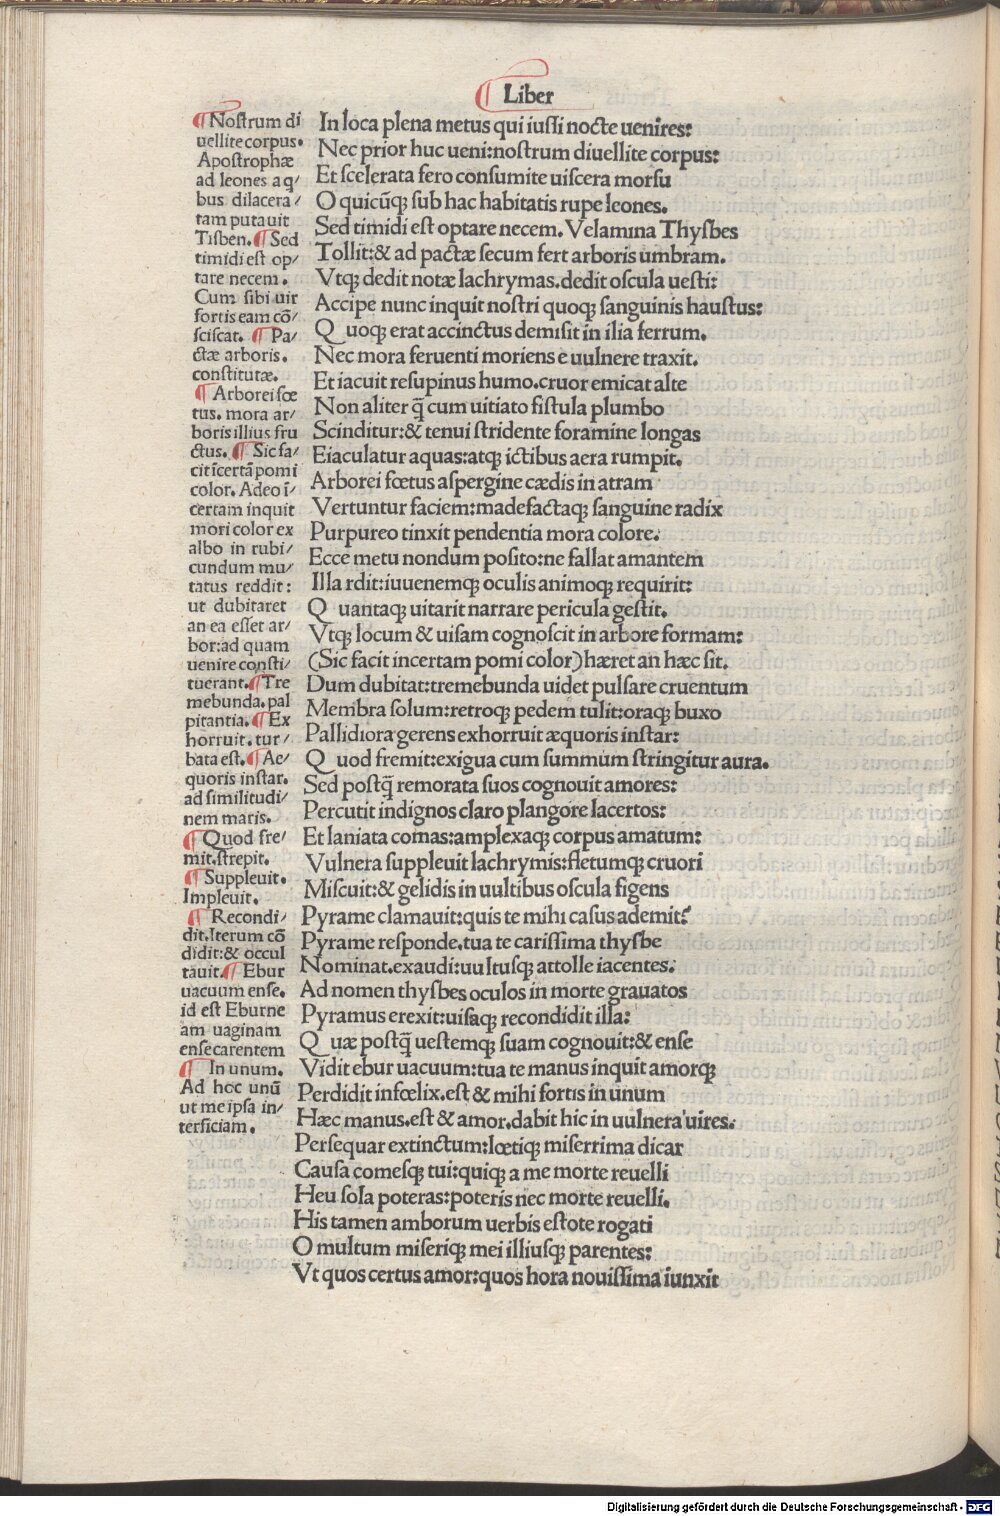 ¶ Liber
¶ Nostrum di
uellite corpus.
Apostrophæ
ad leones a q/
bus dilacera/
tam putauit
Tisben. ¶ Sed
timidi est op/
tare necem.
Cum sibi uir
fortis eam cō/
sciscat. ¶ Pa/
ctæ arboris.
constitutæ.
¶ Arborei fœ
tus. mora ar/
boris illius fru
ctus. ¶ Sic fa/
cit īcertā pomi
color. Adeo ī/
certam inquit
mori color ex
albo in rubi/
cundum mu/
tatus reddit:
ut dubitaret
an ea esset ar/
bor: ad quam
uenire consti/
tuerant. ¶ Tre
mebunda. pal
pitantia. ¶ Ex
horruit. tur/
bata est. ¶ Ae/
quoris instar.
ad similitudi/
nem maris.
¶ Quod fre/
mit. strepit.
¶ Suppleuit.
Impleuit.
¶ Recondi/
dit. Iterum cō
didit: & occul
tauit. ¶ Ebur
uacuum ense.
id est Eburne
am uaginam
ense carentem
¶ In unum.
Ad hoc unū
ut me ipsa in/
terficiam.
In loca plena metus qui iussi nocte uenires:
Nec prior huc ueni: nostrum diuellite corpus:
Et scelerata fero consumite uiscera morsu
O quicūqꝫ sub hac habitatis rupe leones.
Sed timidi est optare necem. Velamina Thysbes
Tollit: & ad pactæ secum fert arboris umbram.
Vtqꝫ dedit notæ lachrymas. dedit oscula uesti:
Accipe nunc inquit nostri quoqꝫ sanguinis haustus:
Q uoqꝫ erat accinctus demisit in ilia ferrum.
Nec mora feruenti moriens e uulnere traxit.
Et iacuit resupinus humo. cruor emicat alte
Non aliter q̄ cum uitiato fistula plumbo
Scinditur: & tenui stridente foramine longas
Eiaculatur aquas: atqꝫ ictibus aera rumpit.
Arborei fœtus aspergine cædis in atram
Vertuntur faciem: madefactaqꝫ sanguine radix
Purpureo tinxit pendentia mora colore.
Ecce metu nondum posito: ne fallat amantem
Illa rdit: iuuenemqꝫ oculis animoqꝫ requirit:
Q uantaqꝫ uitarit narrare pericula gestit.
Vtqꝫ locum & uisam cognoscit in arbore formam:
(Sic facit incertam pomi color) hæret an hæc sit.
Dum dubitat: tremebunda uidet pulsare cruentum
Membra solum: retroqꝫ pedem tulit: oraqꝫ buxo
Pallidiora gerens exhorruit æquoris instar:
Q uod fremit: exigua cum summum stringitur aura.
Sed postq̄ remorata suos cognouit amores:
Percutit indignos claro plangore lacertos:
Et laniata comas: amplexaqꝫ corpus amatum:
Vulnera suppleuit lachrymis: fletumqꝫ cruori
Miscuit: & gelidis in uultibus oscula figens
Pyrame clamauit: quis te mihi casus ademit?
Pyrame responde. tua te carissima thysbe
Nominat. exaudi: uultusqꝫ attolle iacentes.
Ad nomen thysbes oculos in morte grauatos
Pyramus erexit: uisaqꝫ recondidit illa:
Q uæ postq̄ uestemqꝫ suam cognouit: & ense
Vidit ebur uacuum: tua te manus inquit amorqꝫ
Perdidit infœlix. est & mihi fortis in unum
Hæc manus. est & amor. dabit hic in uulnera uires.
Persequar extinctum: lœtiqꝫ miserrima dicar
Causa comesqꝫ tui: quiqꝫ a me morte reuelli
Heu sola poteras: poteris nec morte reuelli.
His tamen amborum uerbis estote rogati
O multum miseriqꝫ mei illiusqꝫ parentes:
Vt quos certus amor: quos hora nouissima iunxit
Digitalisierung gefördert durch die Deutsche Forschungsgemeinschaft - DFG